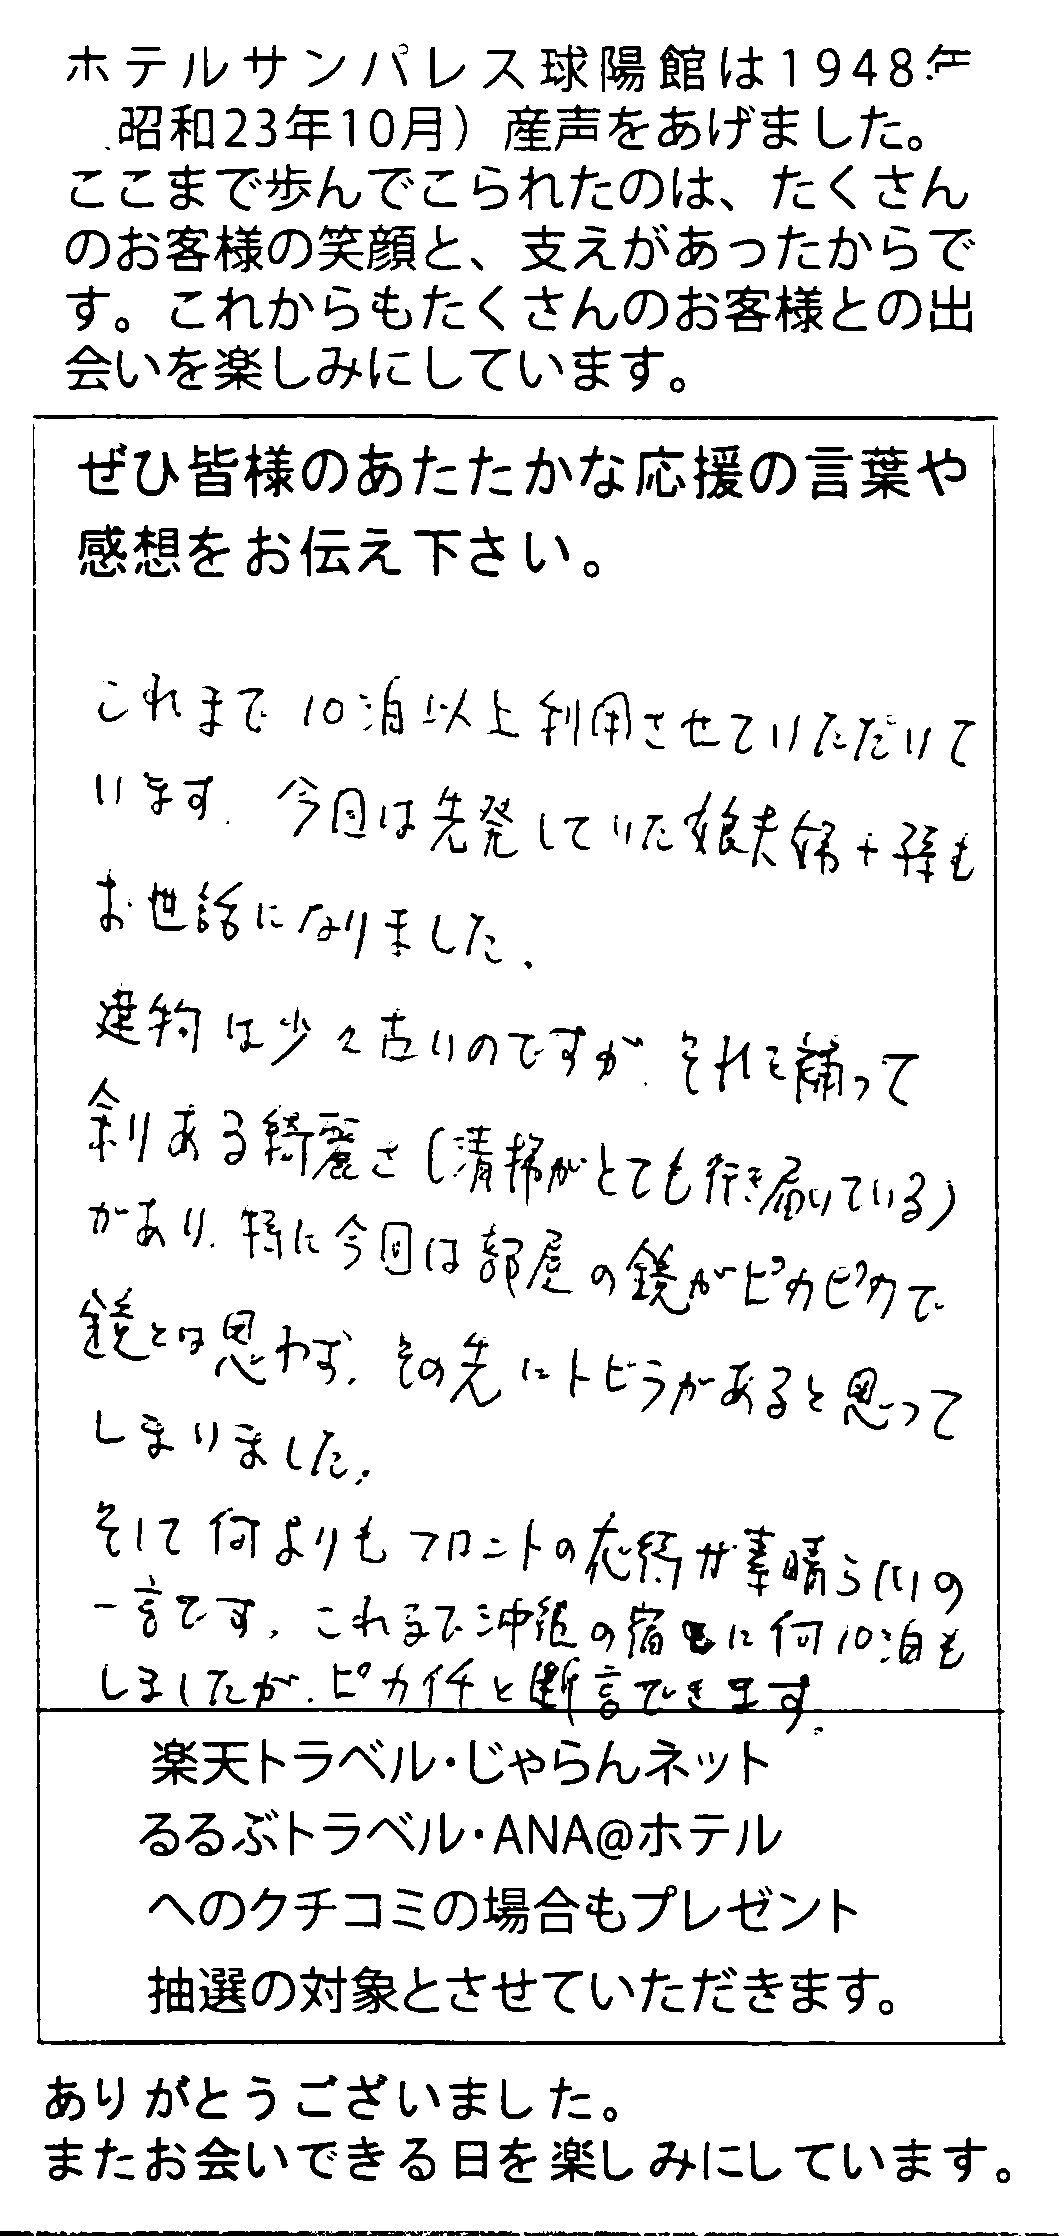 ホテルサンパレス球陽館は1948年
昭和23年10月）産声をあげました。
ここまで歩んでこられたのは、たくさん
のお客様の笑顔と、支えがあったからで
す。これからもたくさんのお客様との出
会いを楽しみにしています。
ぜひ皆様のあたたかな応援の言葉や
感想をお伝え下さい。
これまで10泊以上利用させていただいて
います. 今回は先発していた娘夫婦+孫も
お世話になりました.
建物は少々古いのですが.それを補って
余りある綺麗さ(清掃がとても行き届いている)
があり.特に今回は部屋の鏡がピカピカで
鏡とは思わず.その先にトビラがあると思って
しまいました.
そして何よりもフロントの応待が素晴らしいの
一言です.これまで沖縄の宿に何10泊も
しましたが.ピカイチと断言できます.
楽天トラベル・じゃらんネット
るるぶトラベル・ANA@ホテル
へのクチコミの場合もプレゼント
抽選の対象とさせていただきます。
ありがとうございました。
またお会いできる日を楽しみにしています。